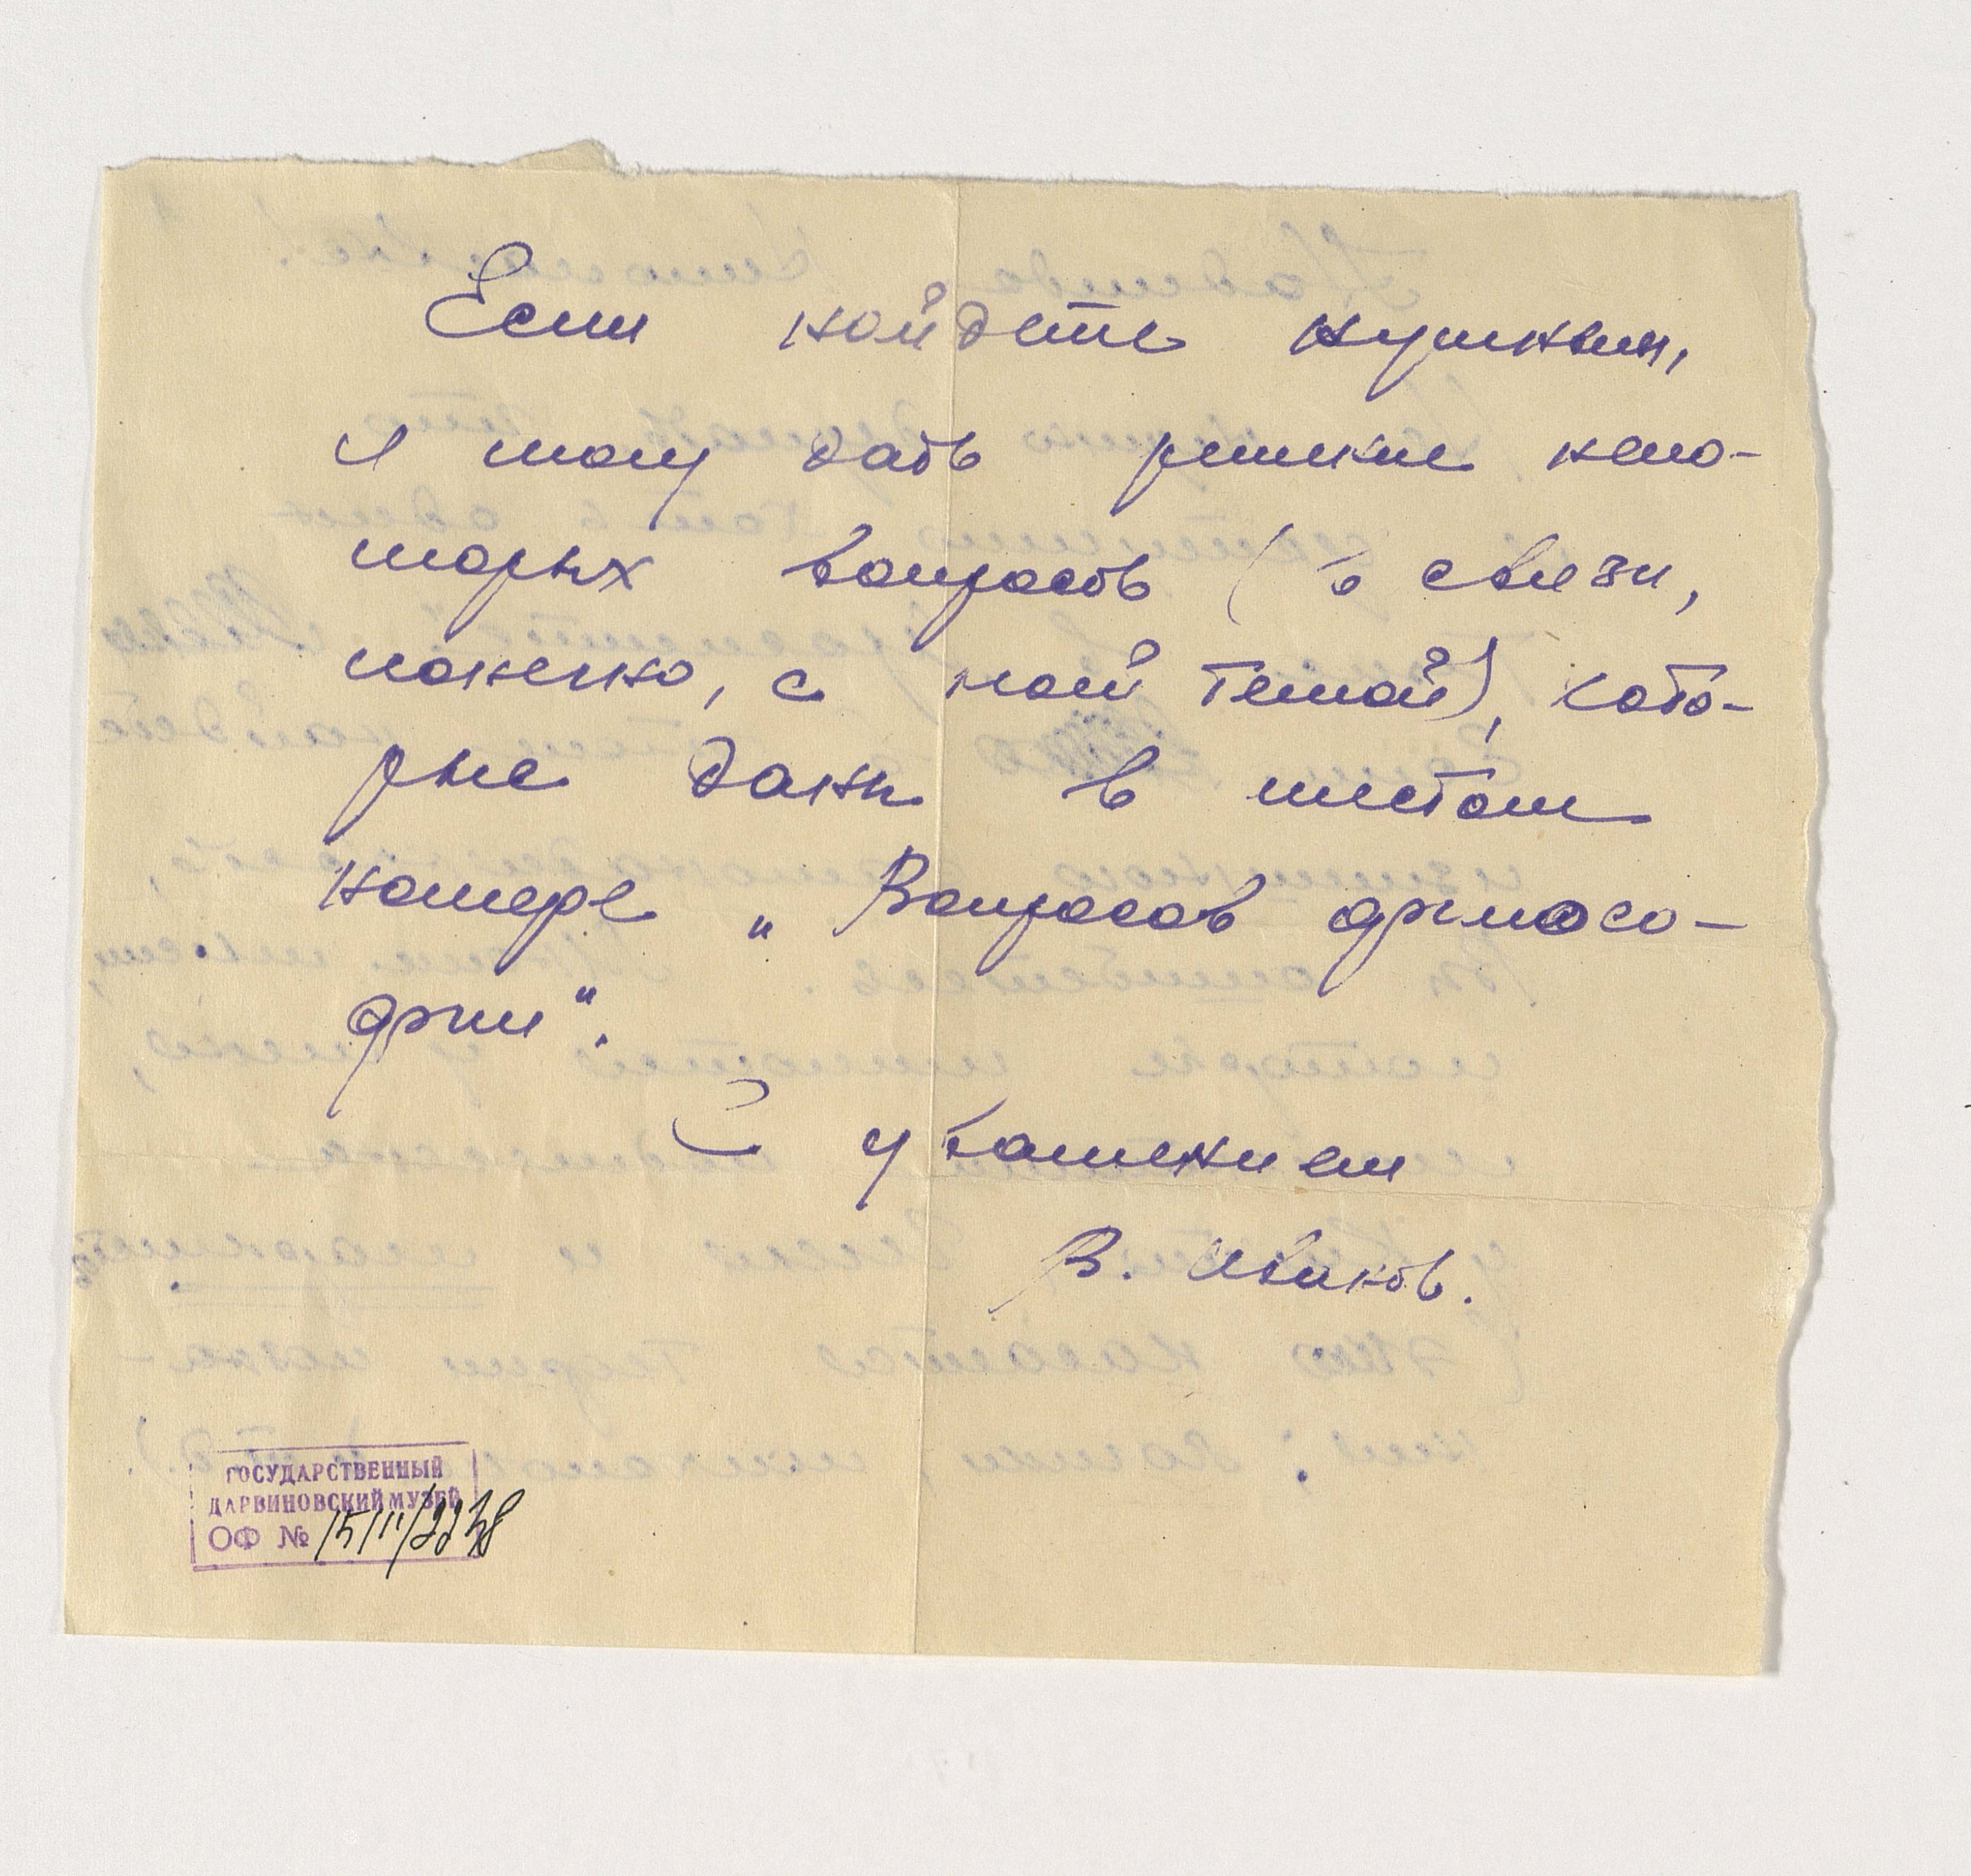 Если найдете нужным,
я могу дать решение неко-
торых вопросов (в связи,
конечно, с моей темой), кото-
рые даны в шестом
номере „Вопросов филосо-
фии“.
С уважением
В. Иванов.
ГОСУДАРСТВЕННЫЙ
ДАРВИНОВСКИЙ МУЗЕЙ
ОФ №